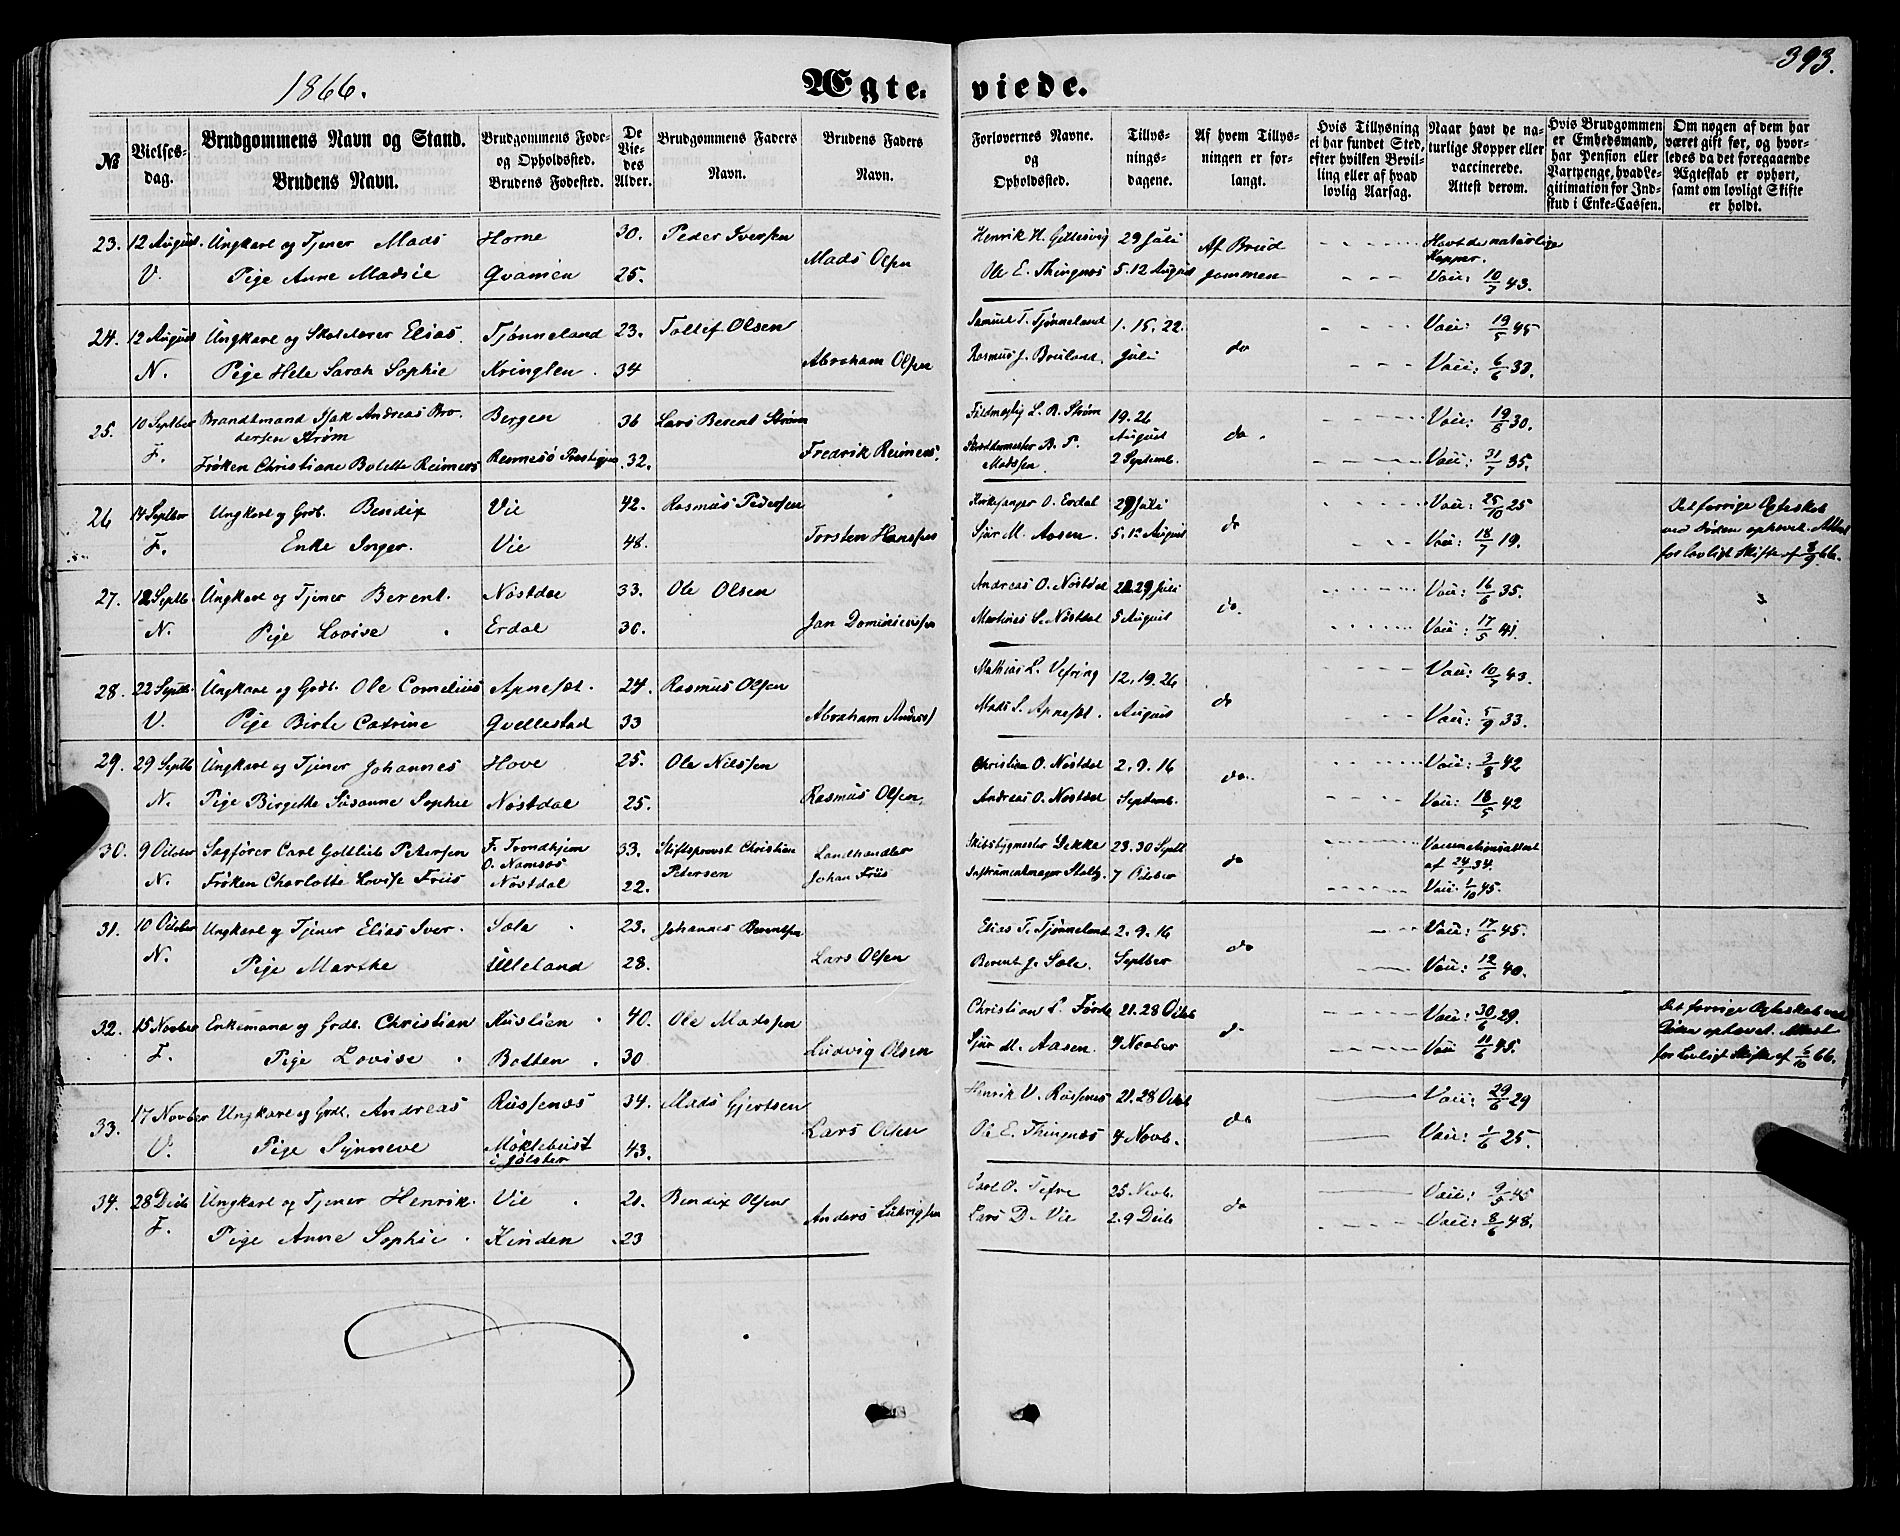 393.
1866.
Ægteviede.
№
Vielsesdag.
Brudgommens Navn og Stand.
Brudens Navn.
Brudgommens Føde- og Opholdssted.
Brudens Fødested.
De Viedes Alder.
Brudgommens Faders Navn.
Brudens Faders Navn.
Forlovernes Navne. og Opholdssted.
Tillysningsdagene.
Af hvem Tillysningen er forlangt.
Hvis Tillysning ei har fundet Sted, efter hvilken Bevilling eller af hvad lovlig Aarsag.
Naar havt de naturlige Kopper eller vaccinerede. Attest derom.
Hvis Brudgommen er Embedsmand, har Pension eller Vartpenge, hvad Legitimation for Indskud i Enke-Cassen.
Om nogen af dem har været gift før, og hvorledes da det foregaaende Ægteskab er ophørt, samt om lovligt Skifte er holdt.
23. 12 August. Ungkarl og Tjener Mads Horne 30. Peder Iversen Henrik H. Gjellesvig 29 Juli Af Brud Havt de naturlige Kopper.
V. Pige Anne Madsie Qvamen 25. Mads Olsen Ole E. Thingnæs 5. 12 August gommen Vacc: 10/7 43.
24. 12 August Ungkarl og Skolelærer Elias Tjønneland 23. Tollef Olsen Samuel T. Tjønneland 1. 15. 22. do Vacc: 19/5 45
N. Pige Hele Sarah Sophie Kringlen 34 Abraham Olsen Rasmus J. Breiland Juli Vacc: 6/6 33.
25. 10 Septber Brandtmand Isak Andreas Brodersen Strøm Bergen 36 Lars Berent Strøm L. R. Strøm 19. 26 August do. Vacc: 19/8 30.
F. Frøken Christiane Bolette Reimers Rennesø Præstegj 32. Fredrik Reimers. B. P. Madssen 2 Septemb. Vacc: 31/7 35.
26 14 Septber Ungkarl og Grdb. Bendix Vie 42. Rasmus Pedersen Kirkesanger O. Erdal 29 Juli do Vacc: 25/10 25 Det forrige Ægteskab
F. Enke Inger. Vie 48. Torsten Hanssen Sjur M. Aasen. 5. 12 August Vacc: 18/7 19. ved Døden ophævet. Attest for lovligt Skifte af 8/9 66.
27. 12 Septb. Ungkarl og Tjener Berent. Nøstdal 33. Ole Olsen Andreas O. Nøstdal 22 29 Juli do. Vacc: 16/6 35.
N. Pige Lovise Erdal 30. Jan Martines S. Nøstdal 5 August Vacc: 17/5 41.
28. 22 Septb. Ungkarl og Grdb. Ole Cornelius Apnesæt. 24. Rasmus Olsen Mathias L. Vefring 12. 19. 26 do Vacc: 10/7 43.
V. Pige Birte Catrine Gvellestad 33 Abraham Anders Mads S. Apnesæt. August Vacc: 5/9 33.
29. 29 Septb Ungkarl og Tjener Johannes Hove 25. Ole Nilssen Christian O. Nøstdal 2. 9. 16 do. Vacc: 3/8 42
N. Pige Birgitte Susanne Sophie Nøstdal 25. Rasmus Olsen Andreas O. Nøstdal Septemb. Vacc: 18/5 42
30. 9 October Sagfører Carl Gottlieb Petersen F. Trondhjem O. Namsos 33. Stiftsprovst Christian Petersen Landhandler Johan Friis Skibsbygmester Dekke 23. 30 Septb do Vaccinationsattest af 24/7 34.
N. Frøken Charlotte Lovise Friis Nøstdal 22. Instrumentmager Stoltz. 7 October Vacc: 1/10 45.
31. 10 October Ungkarl og Tjener Elias Iver. Sole 23. Johannes Berentsen Elias T. Tjønneland 2. 9. 16 do Vacc: 17/6 45.
N. Pige Marthe Ulleland 28. Lars Olsen Berent J. Sole. Septber Vacc: 12/6 40.
32. 15 Novber Enkemand og Grdb. Christian Huslien 40. Ole Madssen Christian S. Førde 21. 28 Octob do Vacc: 30/6 29. Det forrige Ægteskab ved
F. Pige Lovise Botten 30 Ludvig Olsen Sjur M. Aasen. 4 Novber Vacc 11/6 45. Døden ophævet. Attest for lovligt Skifte af 6/10 66.
33. 17 Novber Ungkarl og Grdb. Andreas Russenæs 34. Mads Gjertsen Henrik V. Russenæs 21. 28 Octob do Vacc: 29/6 29
V. Pige Synneve Møklebust i Jølster 43. Lars Olsen Ole E. Thingnæs 4 Novb. Vacc: 1/6 25.
34. 28 Decb Ungkarl og Tjener Henrik. Vie 21. Bendix Olsen Carl O. Tefre 25 Novb. do Vacc: 9/5 45
F. Pige Anne Sophie Kinden 23 Anders Ludvigsen Lars D. Vie 2. 9 Decb Vacc: 8/6 48.